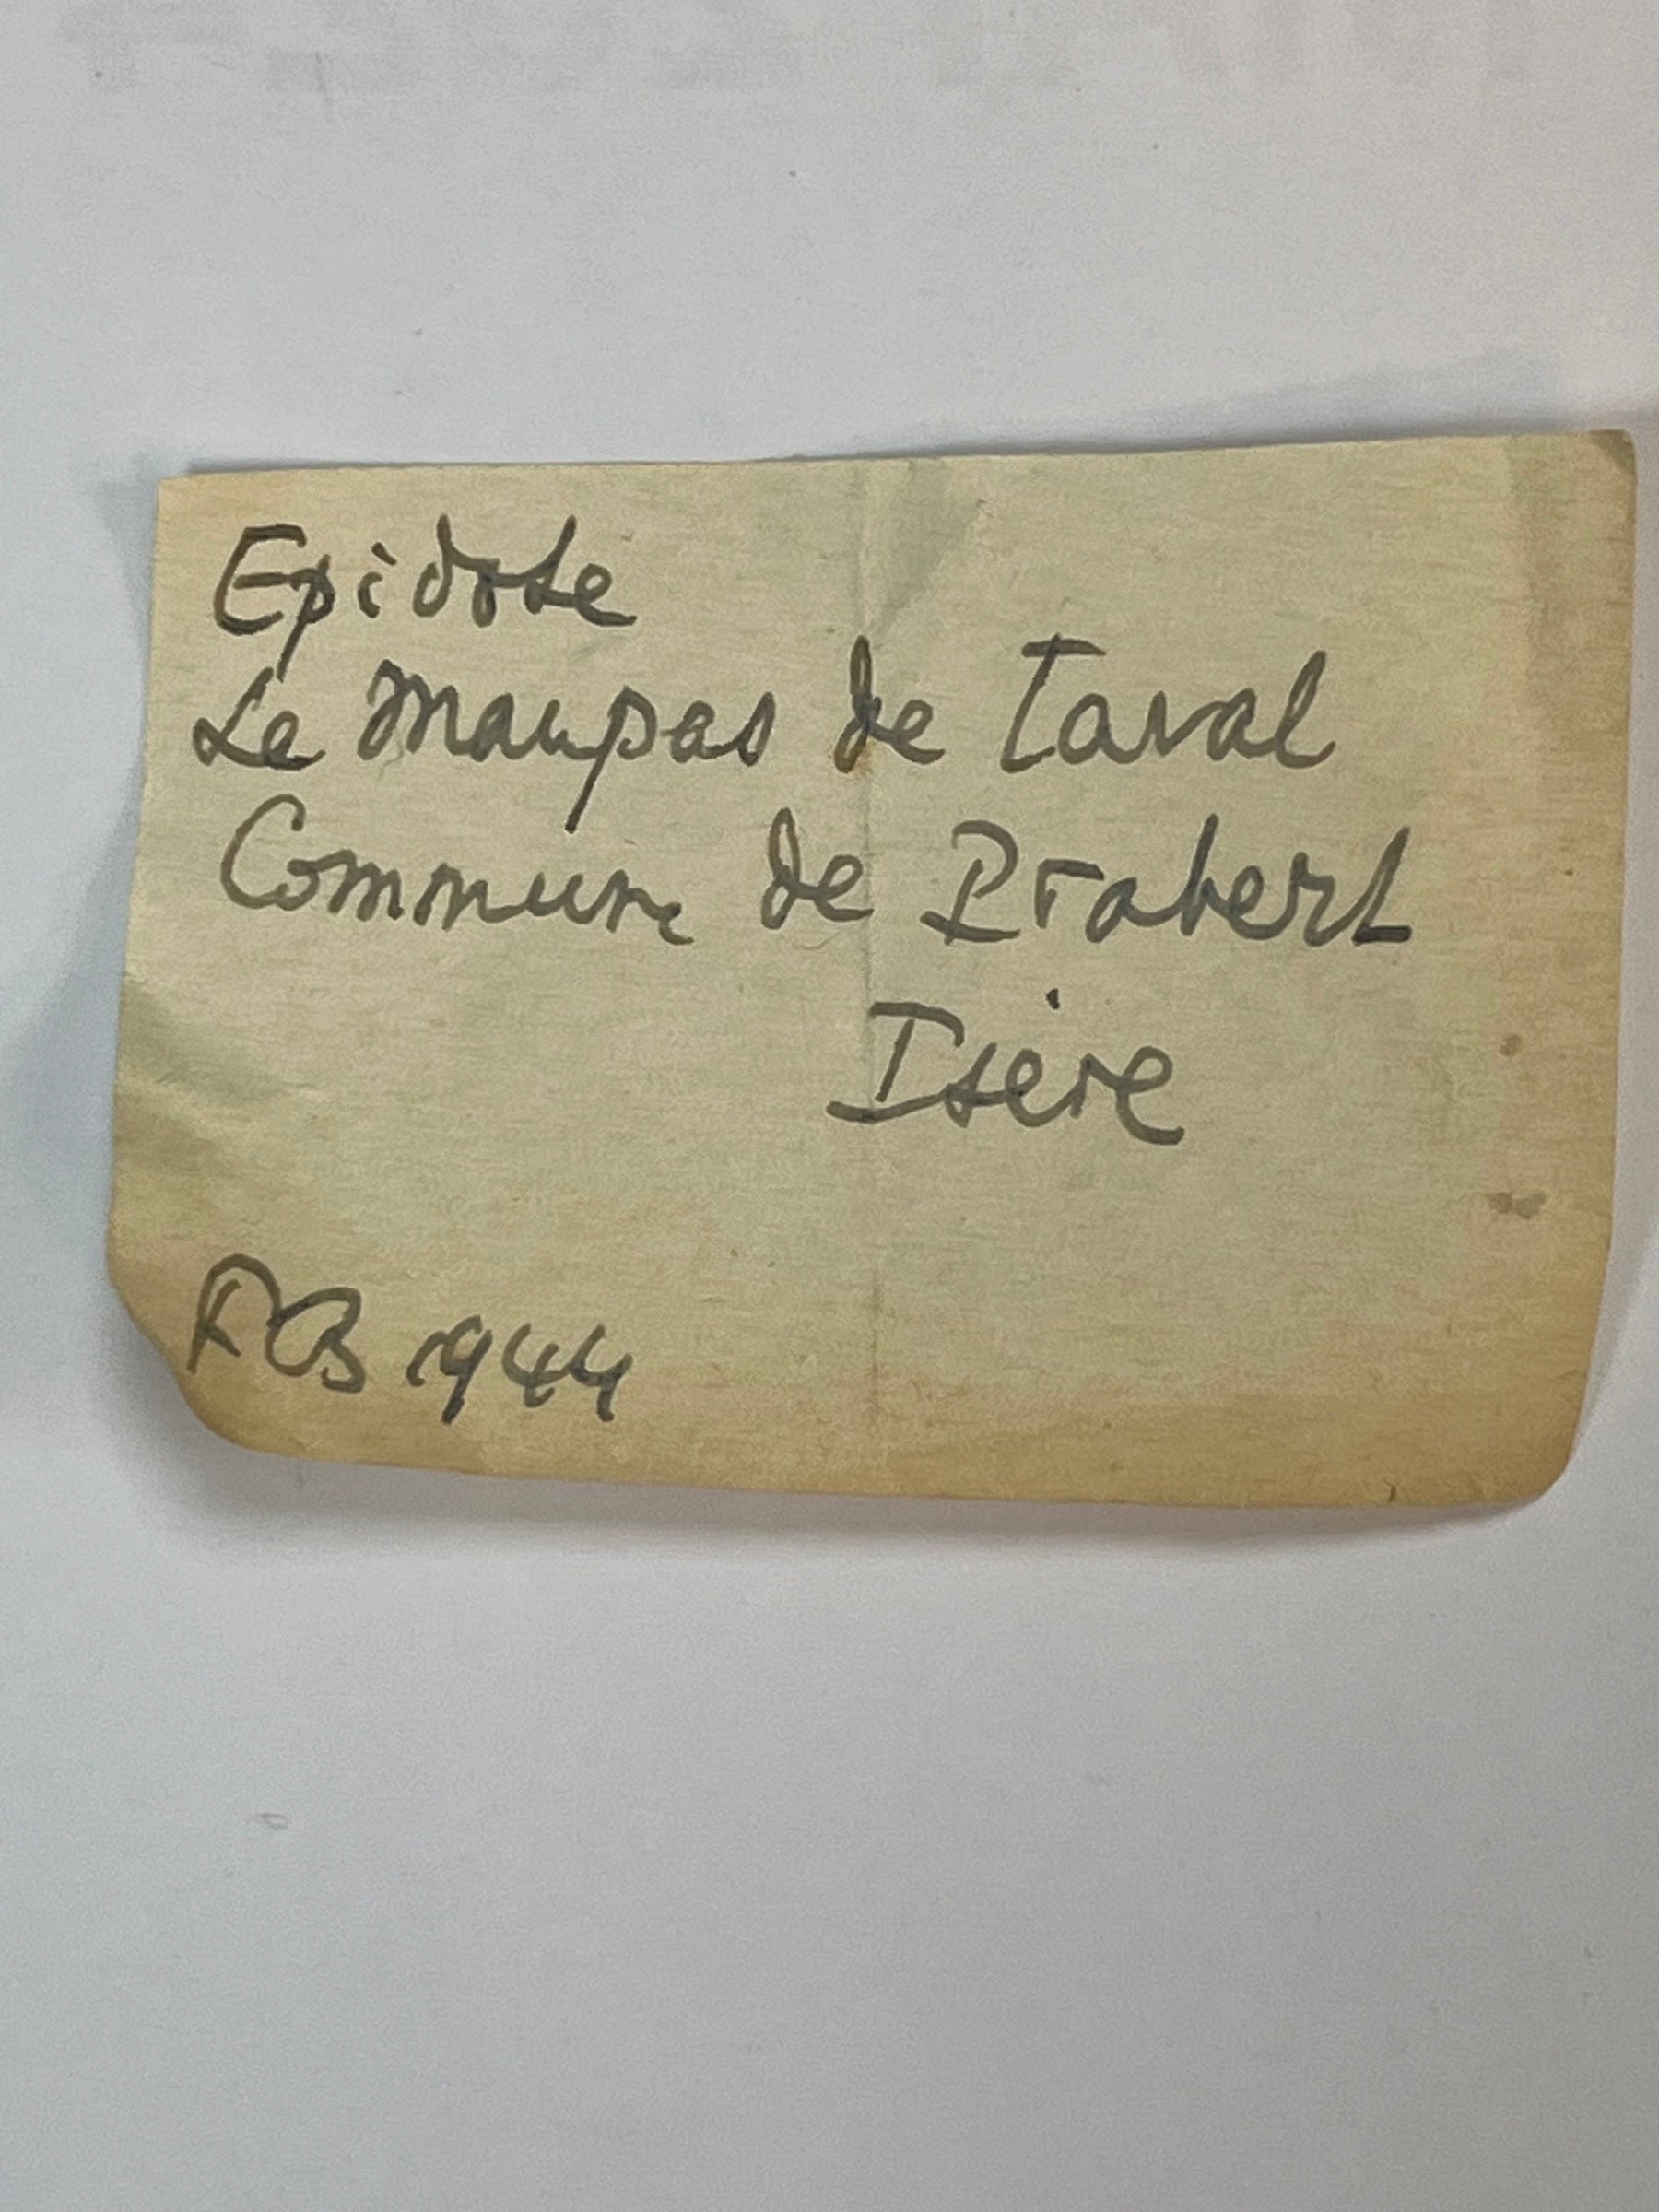 Epidote
Le Maupas de Laval
Commune de Prabert
Isère
RB 1944